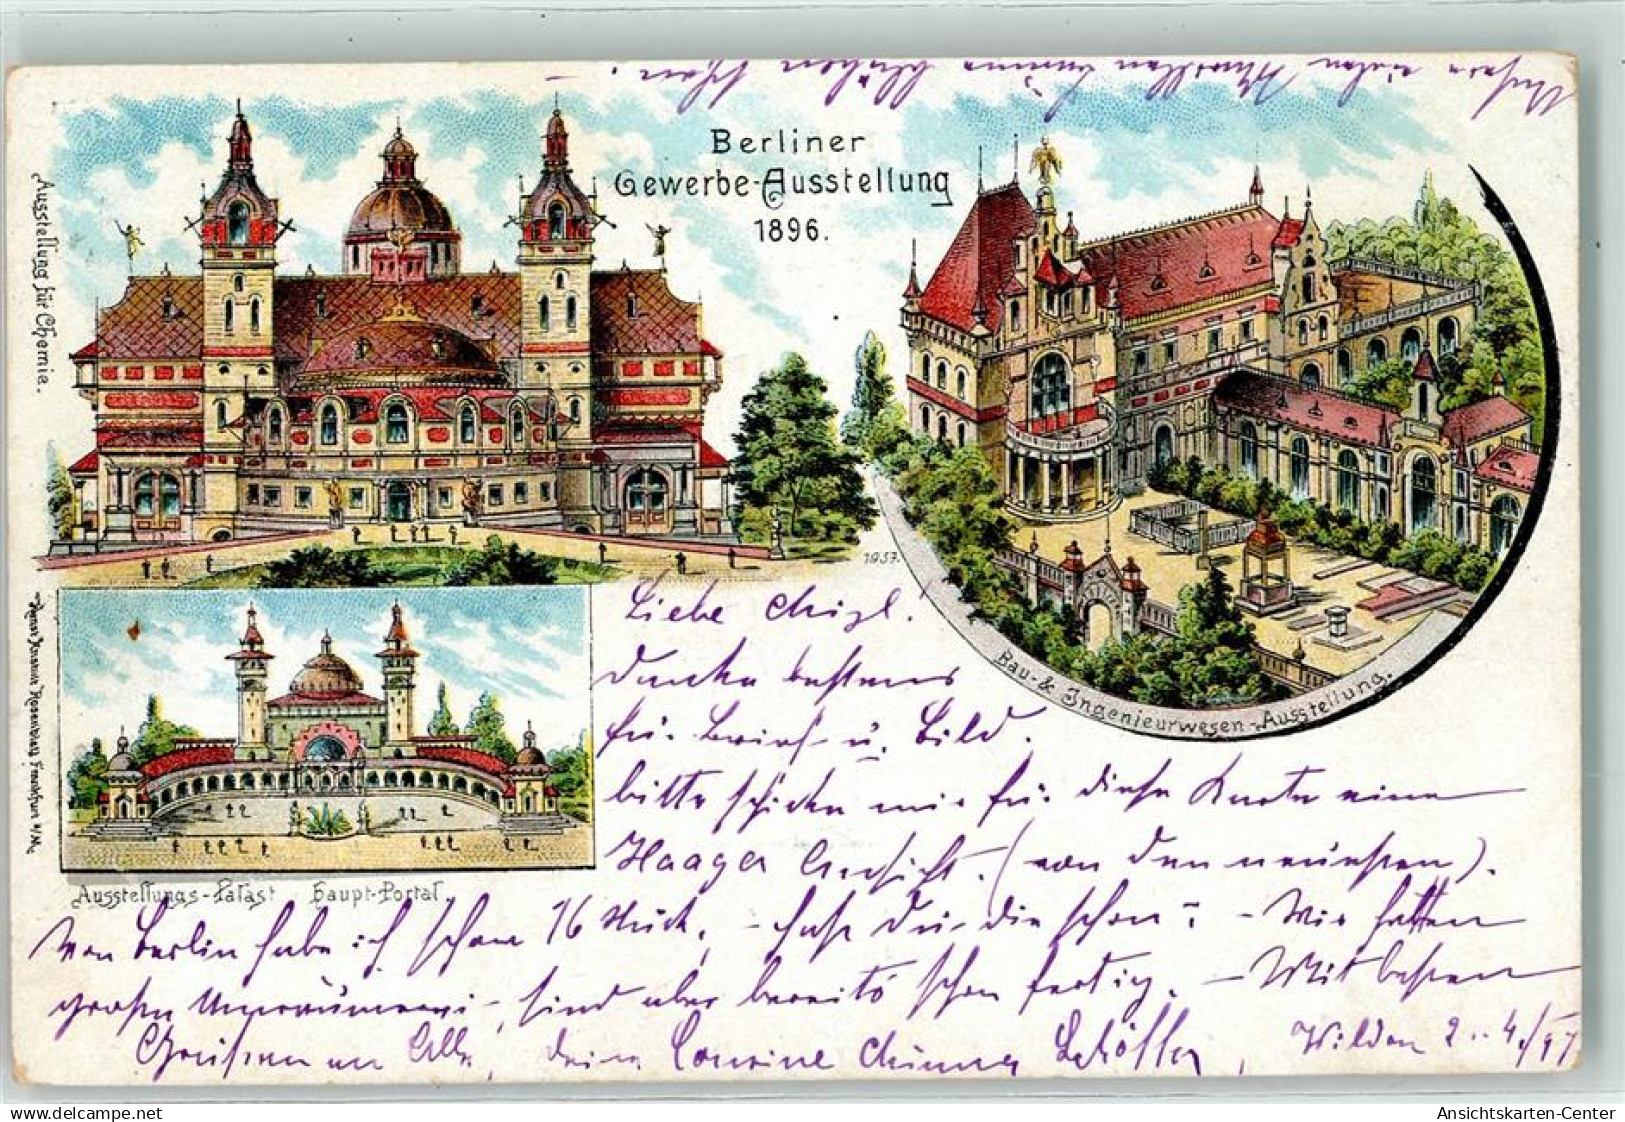 Berliner
Gewerbe-Ausstellung
1896.
Ausstellung für Chemie.
1957.
Bau- & Ingenieurwesen-Ausstellung.
Frankfurt a/M.
Ausstellungs-Palast Haupt-Portal.
Liebe Mizl!
Danke bestens
für Brief u. Bild.
bitte schicke mir für diese Karte eine
Haager Ansicht. (von den neuesten).
Von Berlin habe ich schon 16 Stück, - hast Du die schon? - Wir hatten
große Umräumerei, sind aber bereits schon fertig. - Mit besten
Grüßen an Alle, deine
Wildon 2. 4./97
Ansichtskarten-Center